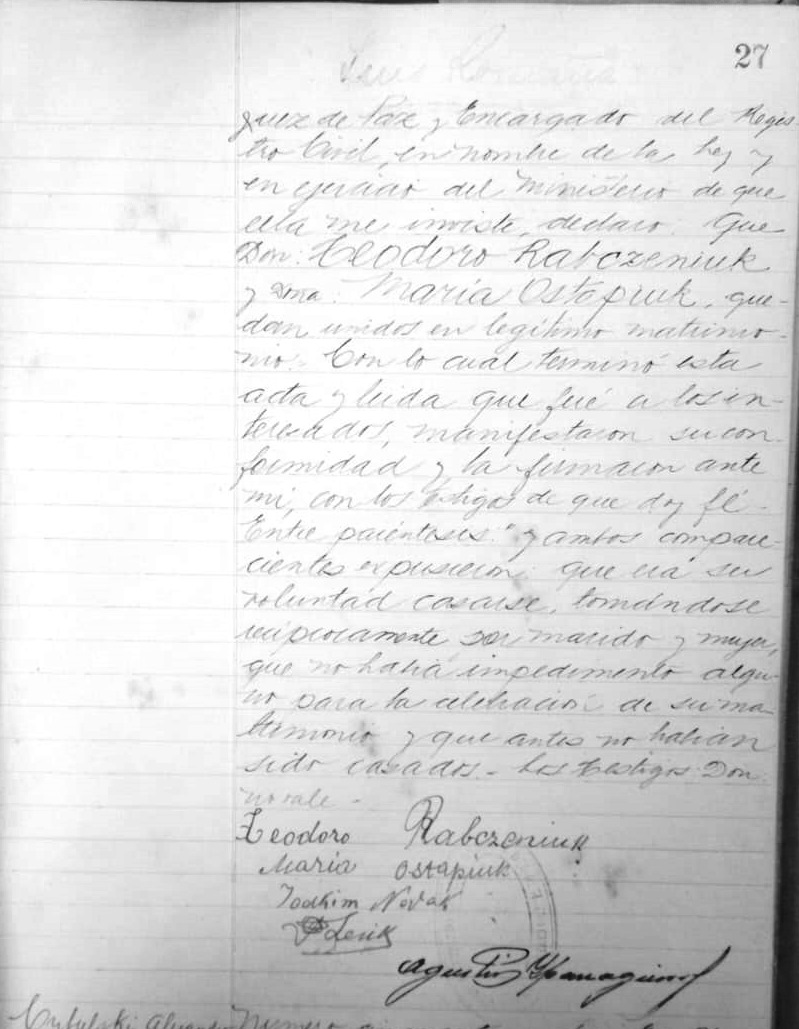 27
Juez de Paz y Encargado del Regis
tro Civil, en nombre de la ley y
en ejercicio del Ministerio de que
ella me inviste, declaro: Que
Don: Teodoro Rabczeniuk
y Doña: Maria Ostapiuk, que-
dan unidos en legítimo matrimo-
nio. Con lo cual terminó esta
acta y leida que fué a los in-
teresados, manifestaron su con
formidad y la firmaron ante
mi, con los testigos de que doy fé.
Entre paréntesis: "y ambos compare-
cientes expusieron: que era su
voluntad casarse, tomándose
recíprocamente por marido y mujer,
que no habia impedimento algu-
no para la celebracion de su ma-
trimonio y que antes no habian
sido casados - Los testigos Don
no vale -
Teodoro Rabczeniuk
Maria Ostapiuk
Joakim Novak
Agustin
Numero